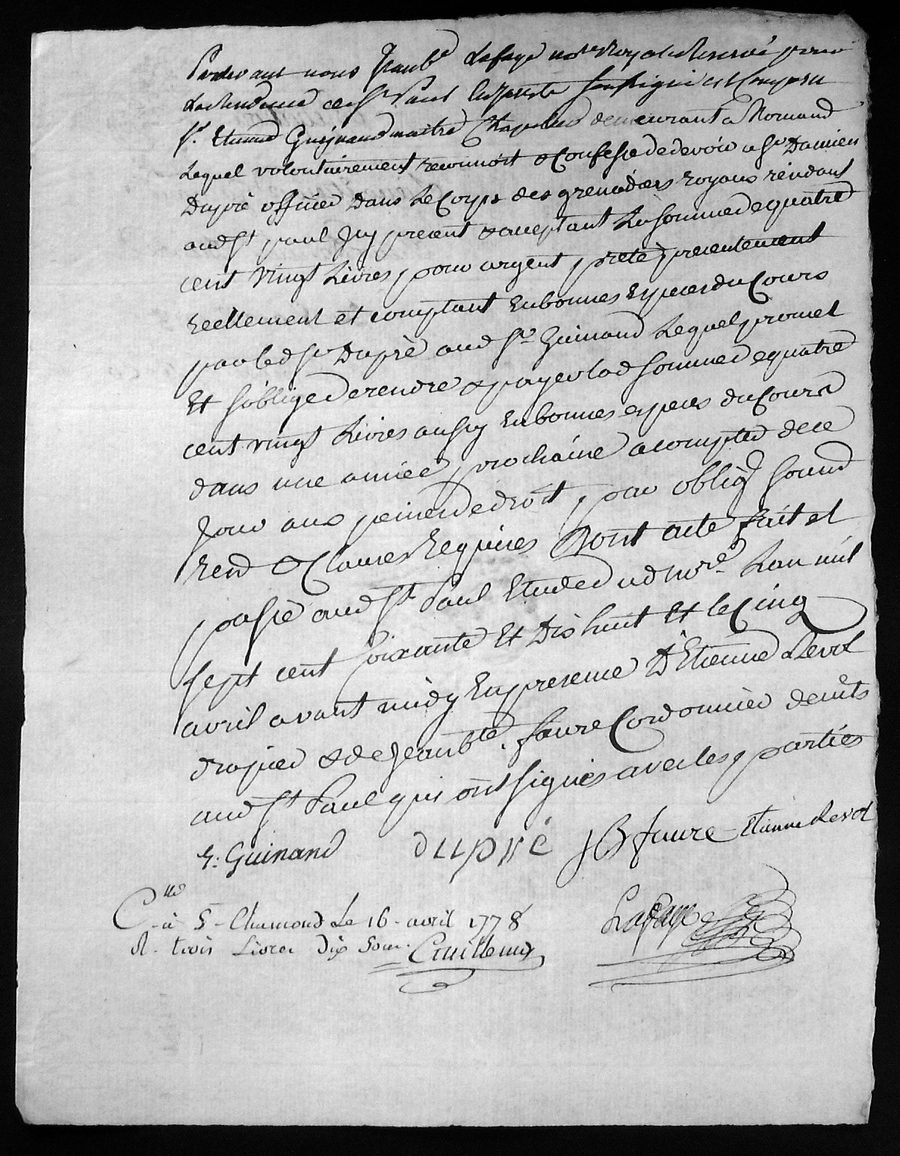 Pardevant nous Jean bte Lafaye nore Royal Reservé pour
La Residence de St Paul En Jarest soussigné est Comparu
Sr. Etienne Guinand maitre Chapelier demeurant a
Lequel volontairement reconnoit & Confesse de devoir a Sr Damien
Dupré officier Dans Le Corps des grenadiers royaux résidant
aud St paul Icy present & aceptant La somme de quatre
cent vingt Livres, pour argent, preté presentement
reellement et comptant En bonnes Especes du Cours
par led Sr Dupré aud Sr Guinand Lequel promet
Et s'oblige de rendre & payer lad somme de quatre
cent vingt Livres aussy En bonnes especes du Cours
dans une année, prochaine a compter de ce
Jour aux peines de droit, par oblign soumd
rend & Clauses Requises Dont acte fait et
passé aud St Paul Etude dud nore. L'an mil
sept cent soixante Et Dix huit Et le Cinq
avril avant midy En presence D'Etienne Revol
drapier & de Jean bte. faure Cordonnier demts
aud St Paul qui ont signés avec les parties
E: Guinand dupré JB faure Etienne Revol
Clle
à St- Chamond Le 16- avril 1778
R. trois Livres dix Sous.
Lafaye